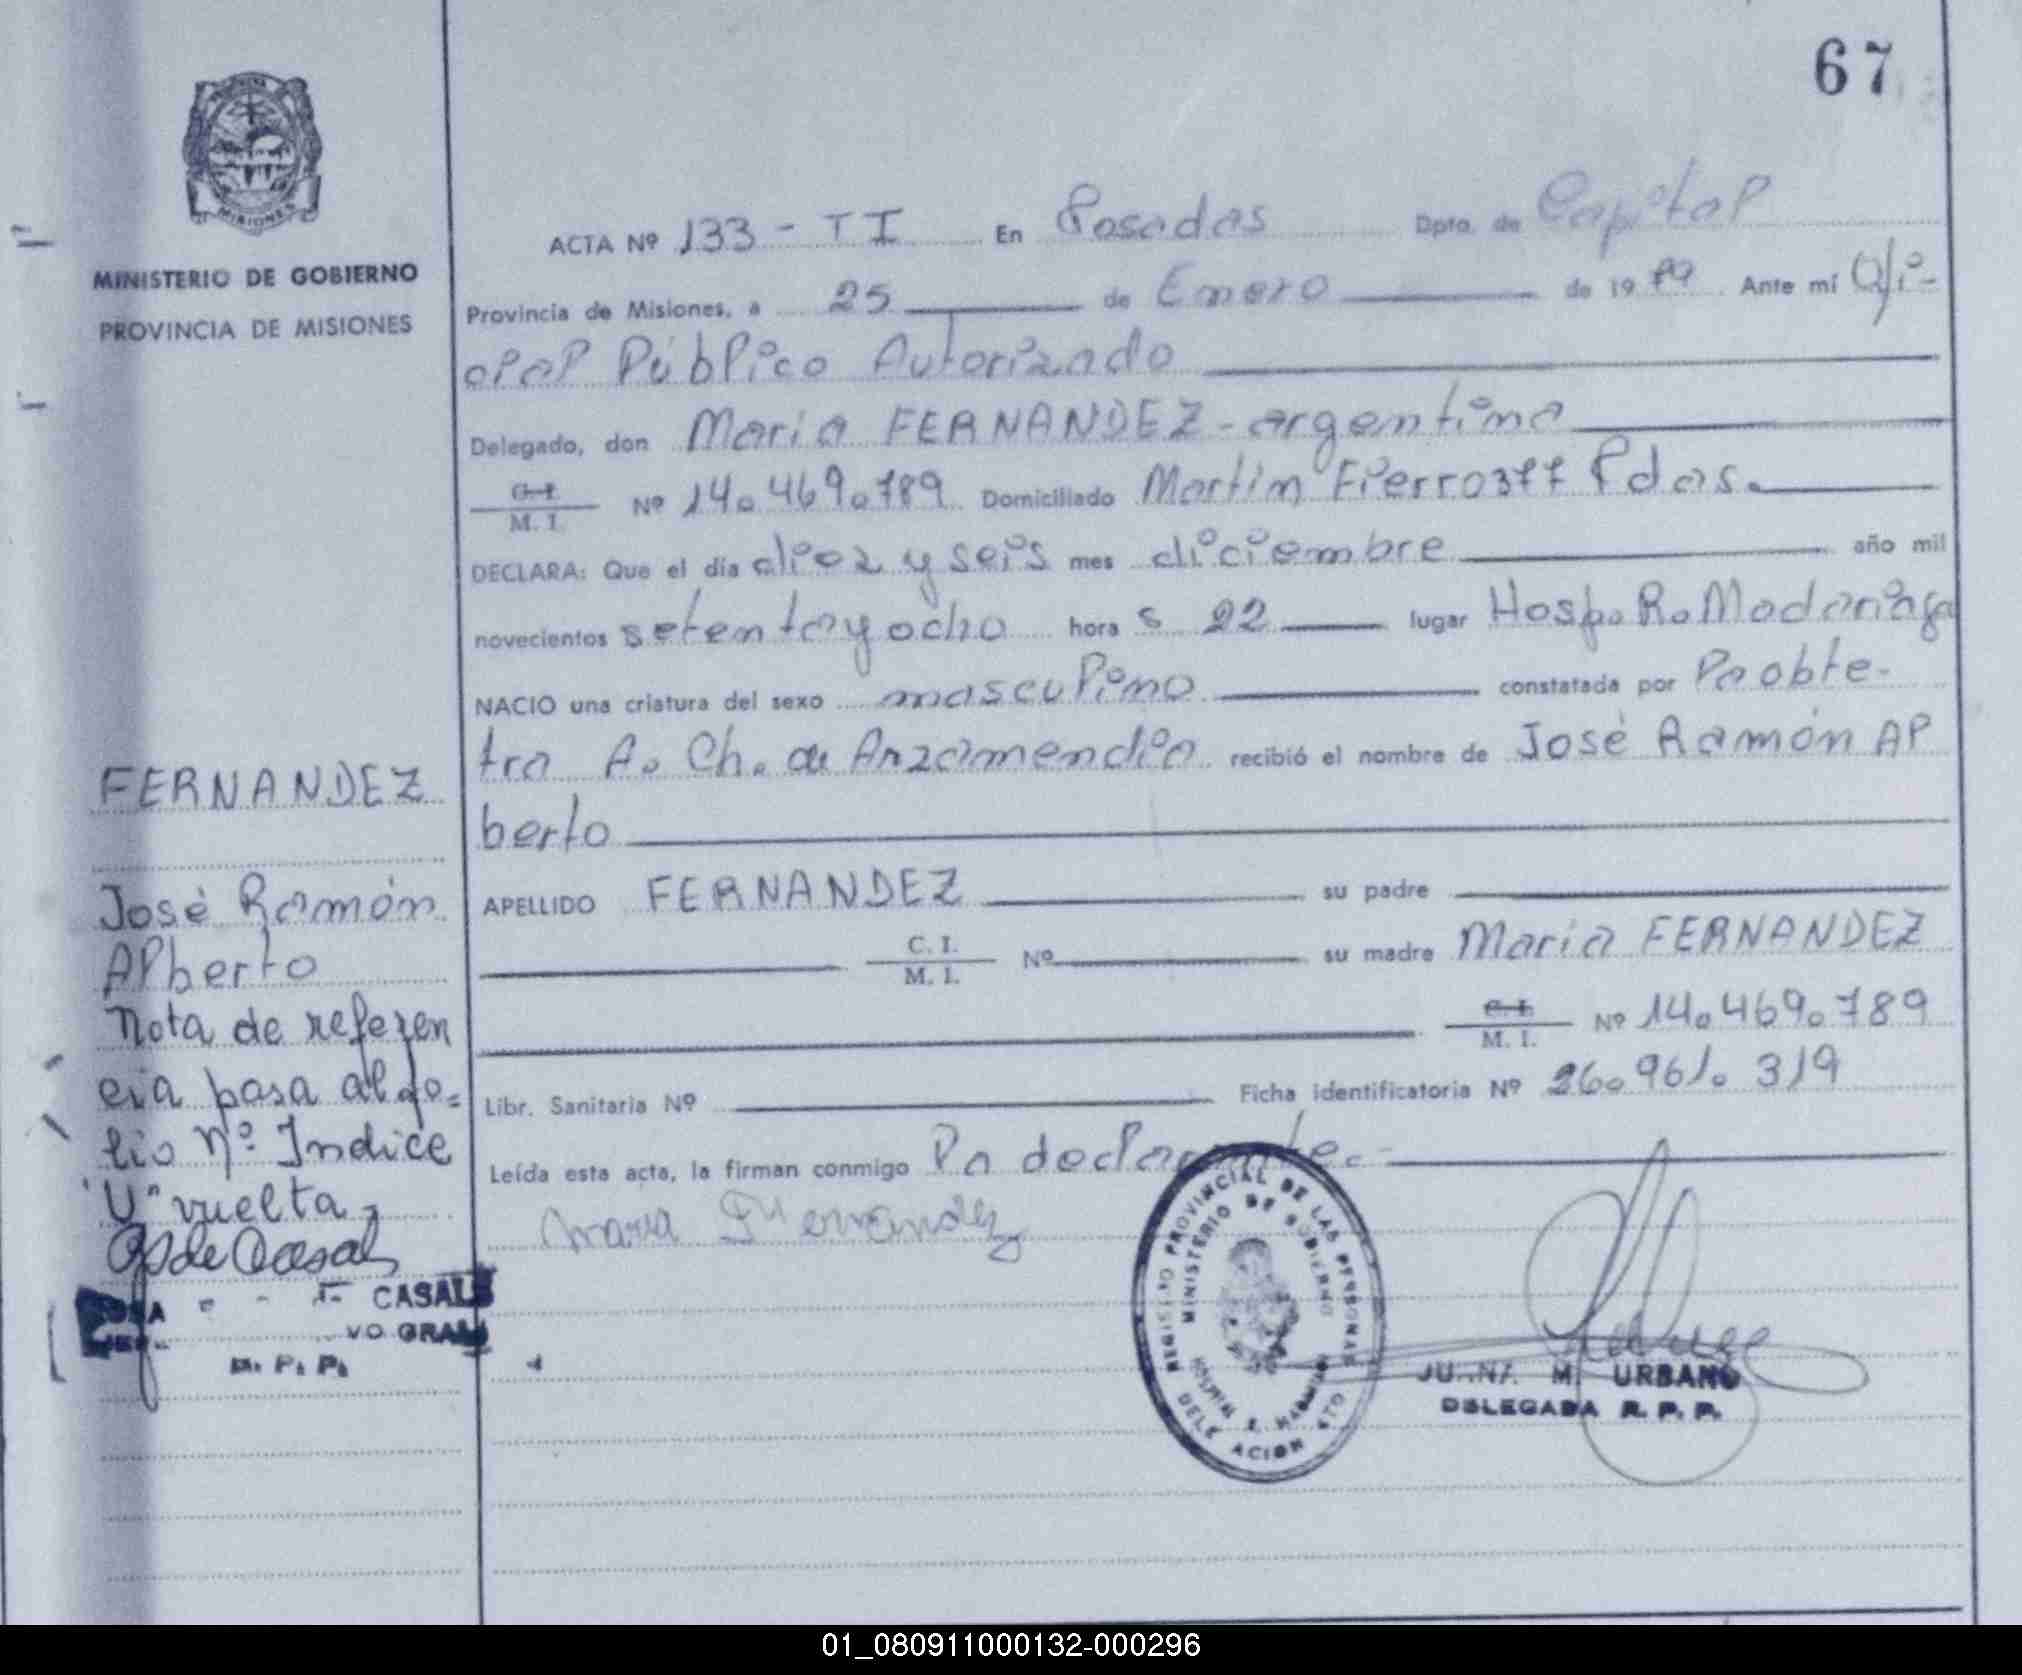 67
MISIONES
MINISTERIO DE GOBIERNO
PROVINCIA DE MISIONES
ACTA Nº 133 - TI En Posadas Dpto. de Capital
Provincia de Misiones, a 25 de Enero de 1979 Ante mí Ofi-
cial Público Autorizado
Delegado, don Maria FERNANDEZ - argentina
C.I. / M. I. Nº 14.469.789 Domiciliado Martin Fierro 377 Pdas.
DECLARA: Que el día diez y seis mes diciembre año mil
novecientos setenta y ocho hora s 22 lugar Hosp. R. Madariaga
NACIO una criatura del sexo masculino constatada por la obte-
tra A. Ch. de Arzamendia recibió el nombre de José Ramón Al
berto
APELLIDO FERNANDEZ su padre
C. I. / M. I. Nº su madre Maria FERNANDEZ
C.I. / M. I. Nº 14.469.789
Libr. Sanitaria Nº Ficha identificatoria Nº 26.961.319
Leída esta acta, la firman conmigo la declarante.-
Maria Fernandez
FERNANDEZ
José Ramón
Alberto
Nota de referen
cia pasa al fo=
lio Nº Indice
"U" vuelta
CASALS
VO GRAL
R. P. P.
REGISTRO PROVINCIAL DE LAS PERSONAS
MINISTERIO DE GOBIERNO
HOSPITAL R. MADARIAGA
DELEGACION
M. URBANO
DELEGADA R. P. P.
01_080911000132-000296